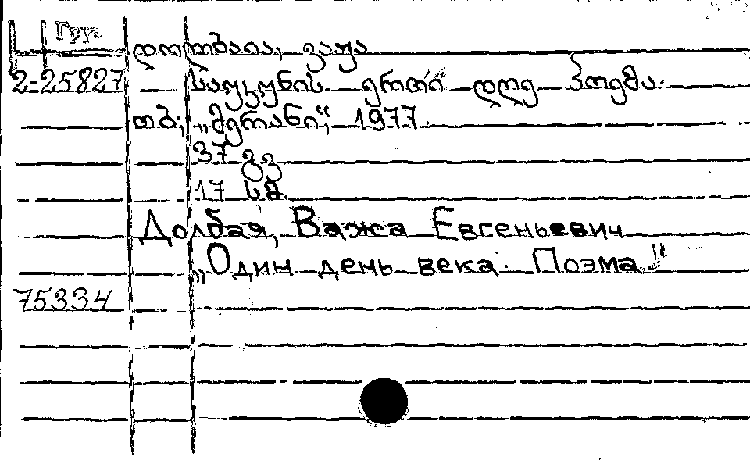 Груз.
დოლბაია, ვაჟა
2-25827 საუკუნის ერთი დღე პოემა.
თბ., „მერანი“, 1977
37 გვ
17 სმ
Долбая, Важа Евгеньевич
„Один день века. Поэма“
75334